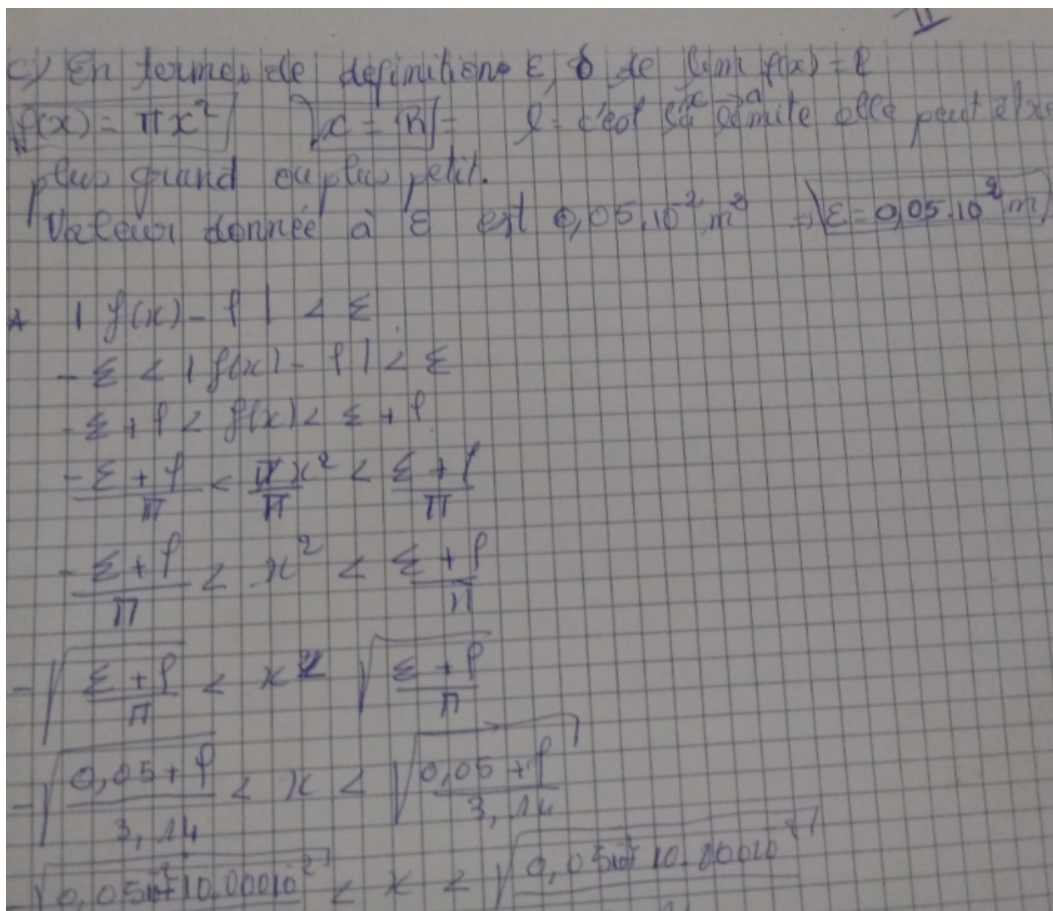 II
c) En termes de definitions ε, δ de lim f(x) = l
x → a
f(x) = πx² x = R l = c'est sa limite elle peut être
plus grand ou plus petit.
Valeur donnée à ε est 0,05.10⁻² m² ⇒ ε = 0,05.10⁻² m
* | f(x) - l | < ε
- ε < | f(x) - l | < ε
- ε + l < f(x) < ε + l
- ε + l / π < πx² / π < ε + l / π
- ε + l / π < x² < ε + l / π
- √(ε + l / π) < x < √(ε + l / π)
- √(0,05 + l / 3,14) < x < √(0,05 + l / 3,14)